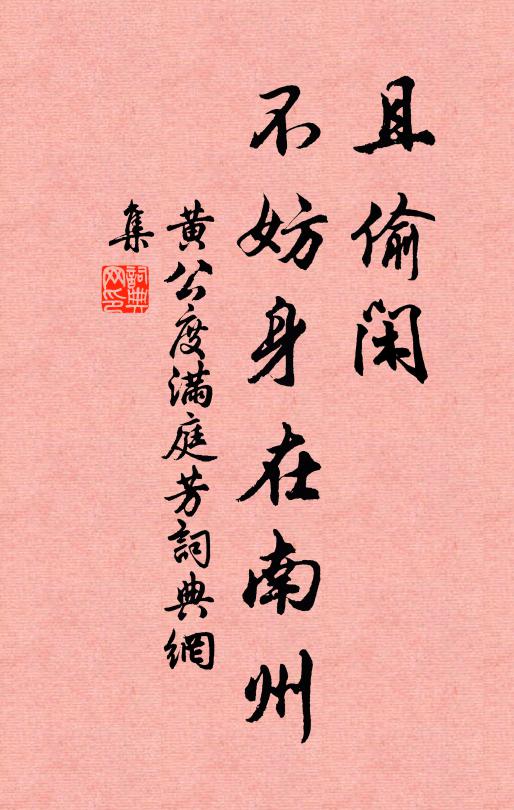 且偷閑
不妨身在南州
黄公度滿庭芳詞典網
集
詞典网印